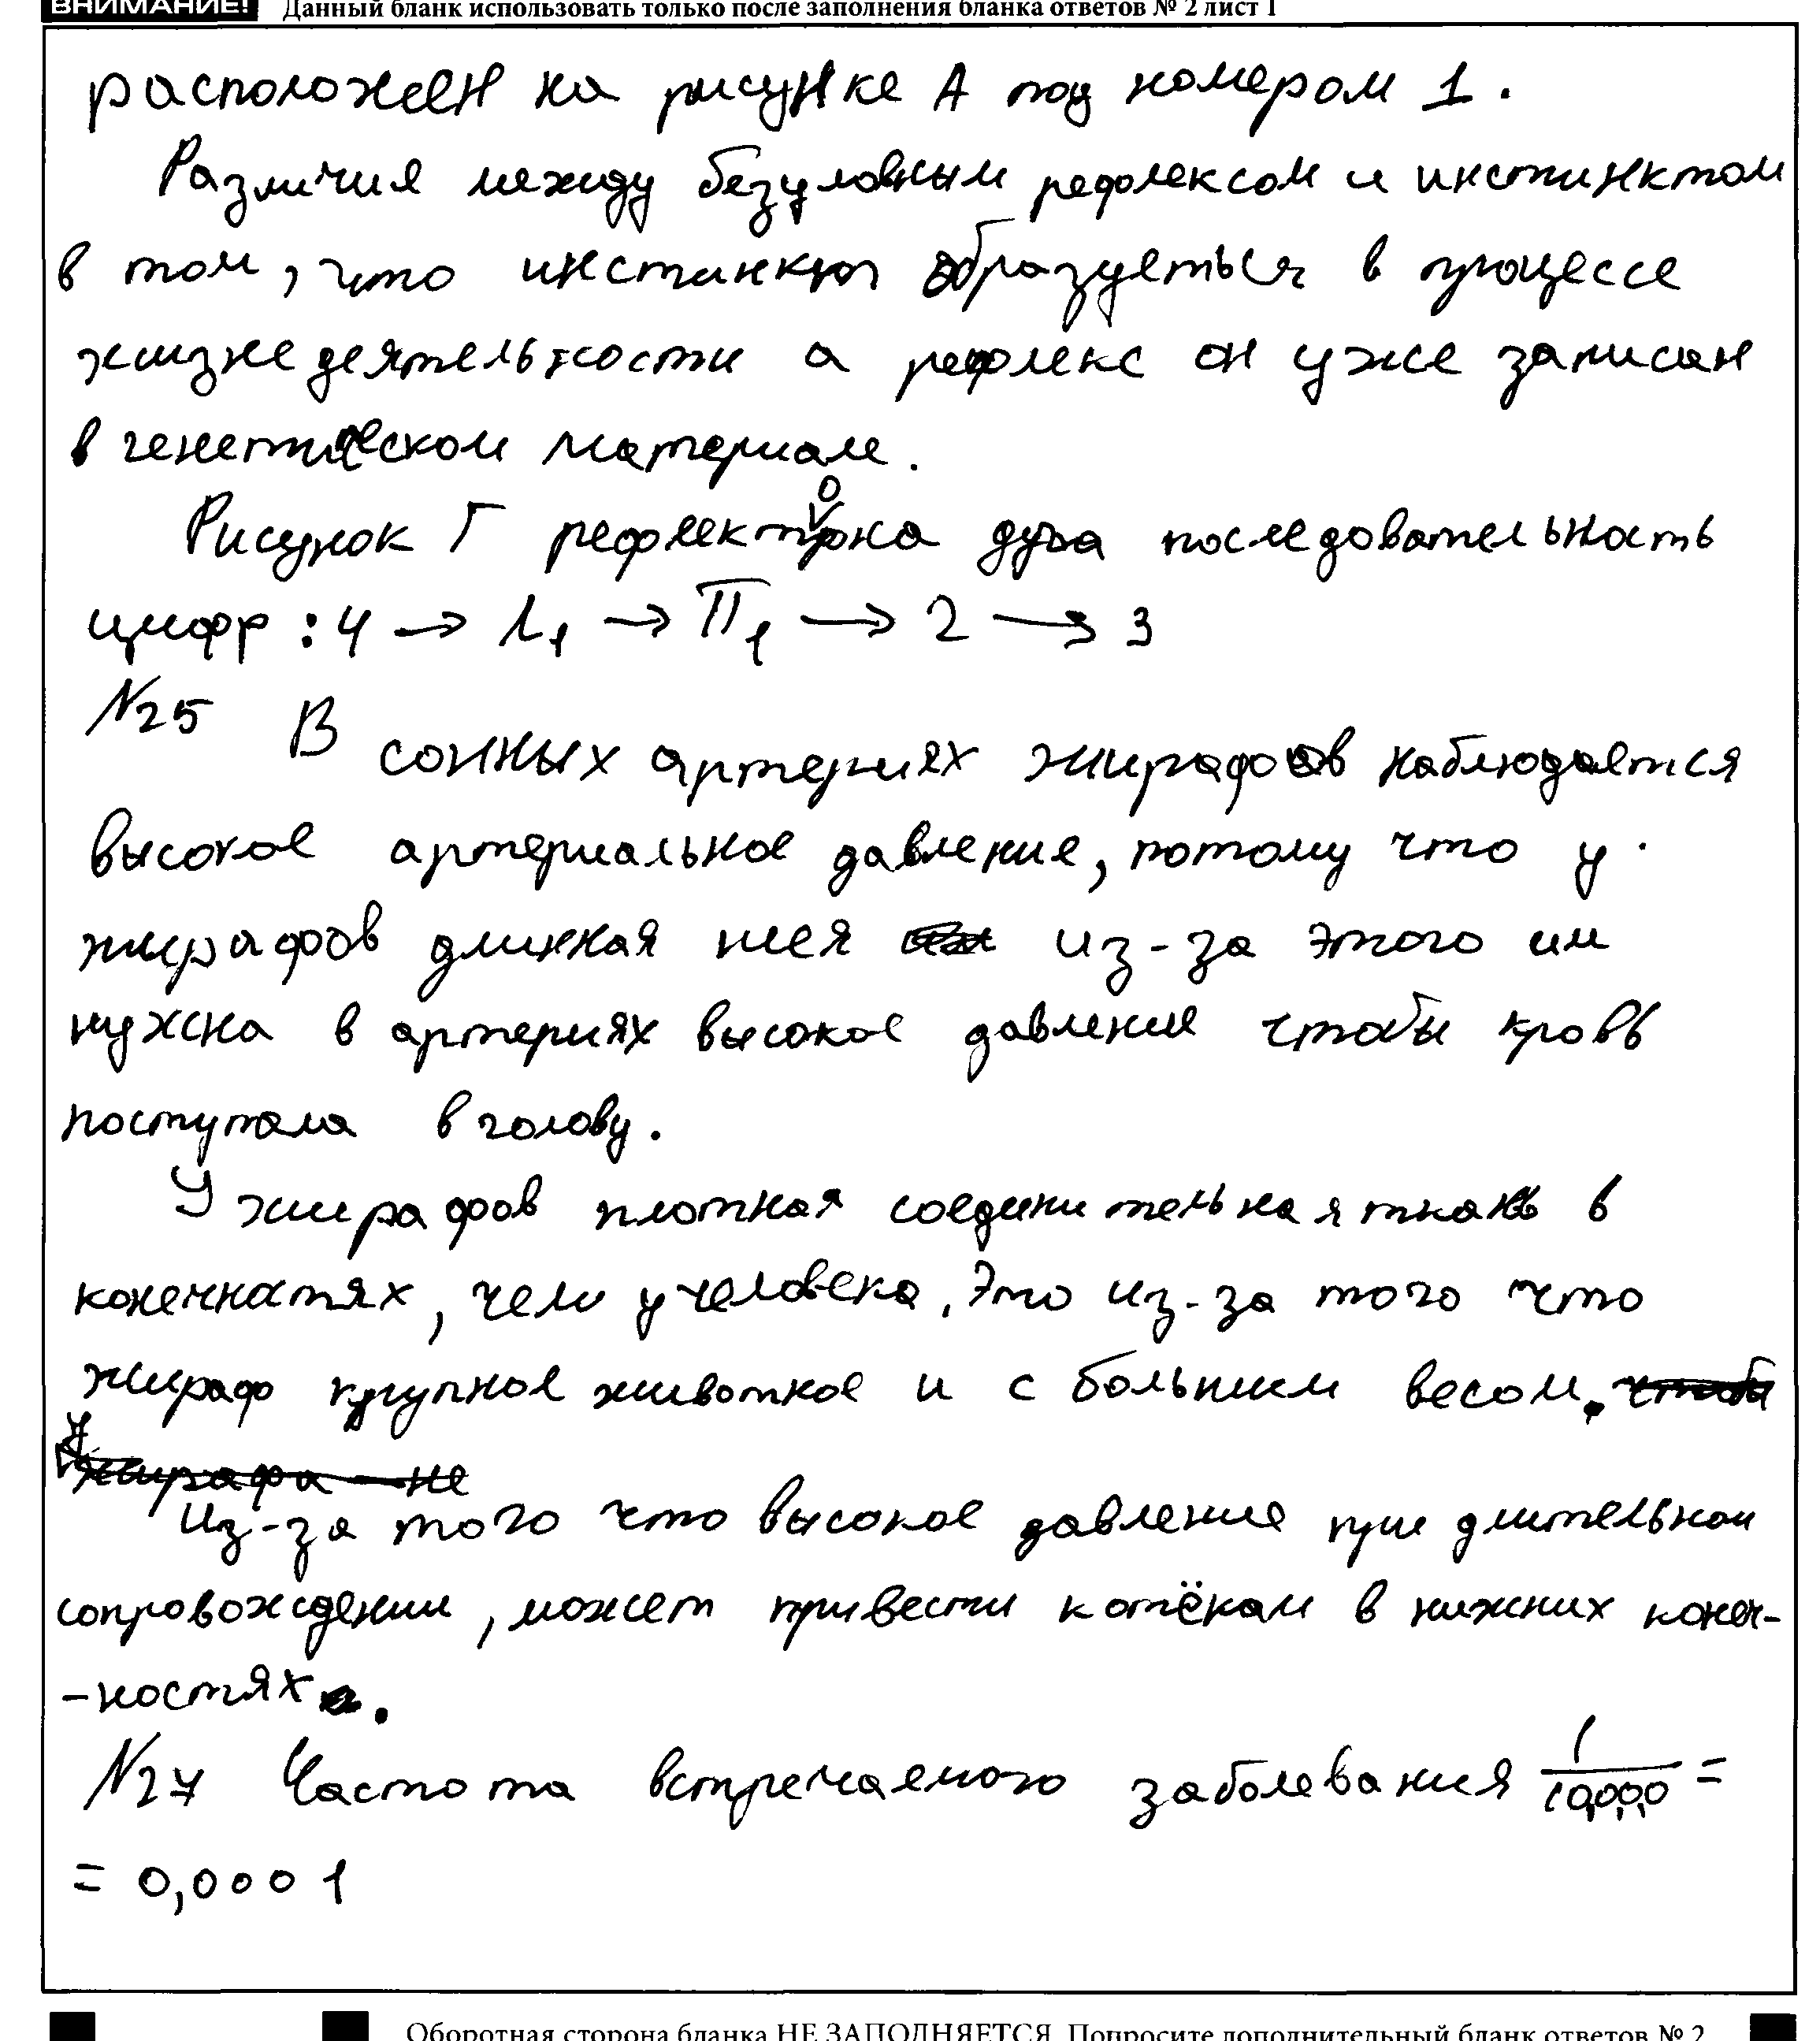 ВНИМАНИЕ! Данный бланк использовать только после заполнения бланка ответов № 2 лист 1
расположен на рисунке А под номером 1.
Различия между безуловным рефлексом и инстинктом
в том, что инстинкт образуеться в процессе
жизнедеятельности а рефлекс он уже записан
в генетическом материале.
Рисунок Г рефлекторна дуга последовательность
цифр : 4 → L1 → П1 → 2 → 3
№25 В сонных артериях жирафов наблюдается
высокое артериальное давление, потому что у
жирафов длинная шея из-за этого им
нужна в артериях высокое давление чтобы кровь
поступала в голову.
У жирафов плотная соединительная ткань в
конечнатях, чем у человека. Это из-за того что
жираф крупное животное и с большим весом.
Из-за того что высокое давление при длительном
сопровождении, может привести к отёкам в нижних конеч-
-ностях.
№27 Частота встречаемого заболевания 1/10000 =
= 0,0001
Оборотная сторона бланка НЕ ЗАПОЛНЯЕТСЯ. Попросите дополнительный бланк ответов № 2